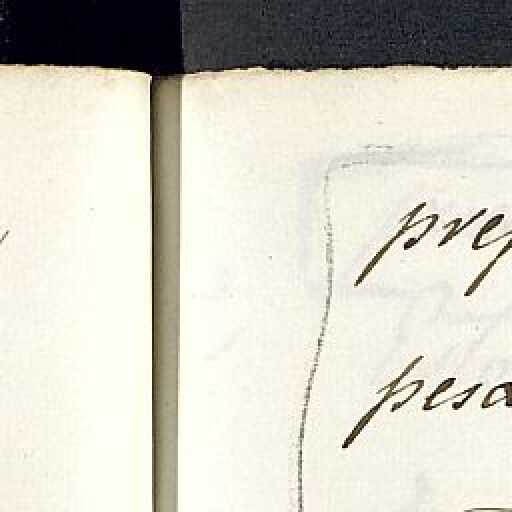 prep
pesa